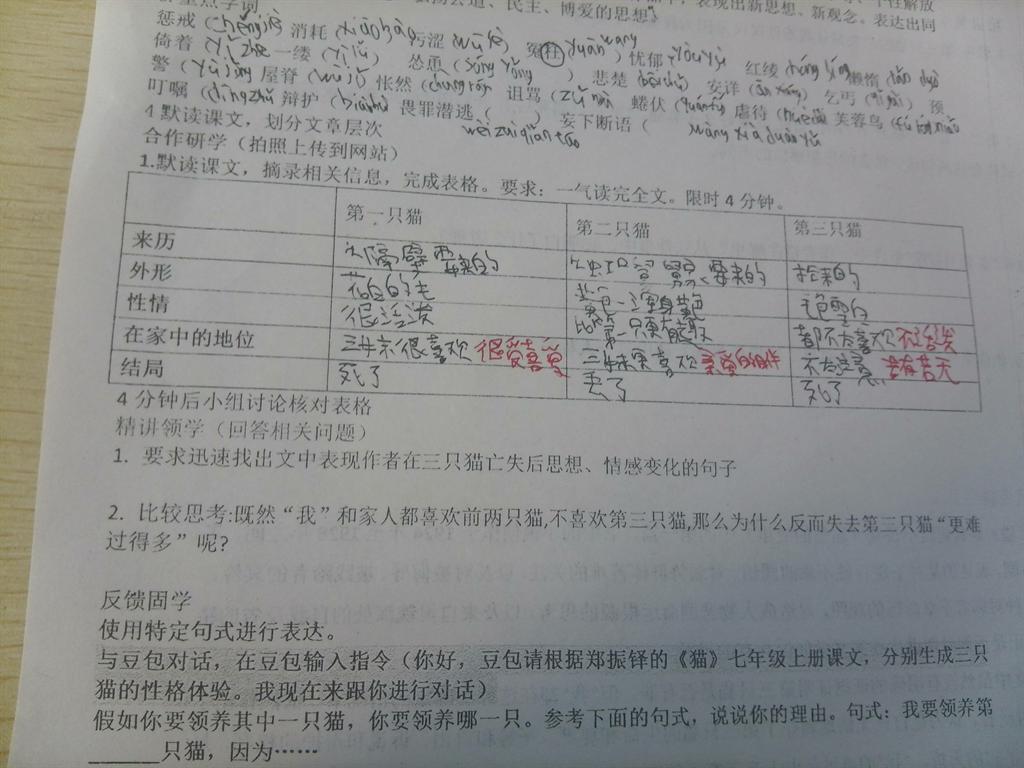 重点字词
公道、民主、博爱的思想
表现出新思想、新观念。表达出同
惩戒（chěngjiè 消耗（xiāohào 污涩（wū sè） 冤枉 yuān wang ）忧郁（yōu yù 红绫（hóng líng 懒惰（lǎn duò
倚着（yǐ zhe 一缕（yī lǚ） 怂恿（sǒng yǒng ）悲楚（bēi chǔ） 安详（ān xiáng） 乞丐（qǐ gài）预
警（yù jǐng 屋脊（wū jǐ 怅然（chàng rán 诅骂（zǔ mà 蜷伏（quán fú 虐待（nüè dài 芙蓉鸟（fú róng niǎo
叮嘱（dīng zhǔ 辩护（biàn hù 畏罪潜逃（ ）妄下断语（
wèi zuì qián táo wàng xià duàn yǔ
4 默读课文，划分文章层次
合作研学（拍照上传到网站）
1.默读课文，摘录相关信息，完成表格。要求：一气读完全文。限时 4 分钟。
第一只猫 第二只猫 第三只猫
来历 从隔壁要来的 要来的 拾来的
外形 花白的毛
性情 很活泼
在家中的地位 三妹很喜欢 很受喜爱 三妹 喜欢 都不太喜欢 不活泼
结局 死了 丢了 死了
4 分钟后小组讨论核对表格
精讲领学（回答相关问题）
1. 要求迅速找出文中表现作者在三只猫亡失后思想、情感变化的句子
2. 比较思考:既然“我”和家人都喜欢前两只猫,不喜欢第三只猫,那么为什么反而失去第三只猫“更难
过得多”呢?
反馈固学
使用特定句式进行表达。
与豆包对话，在豆包输入指令（你好，豆包请根据郑振铎的《猫》七年级上册课文，分别生成三只
猫的性格体验。我现在来跟你进行对话）
假如你要领养其中一只猫，你要领养哪一只。参考下面的句式，说说你的理由。句式：我要领养第
______只猫，因为……